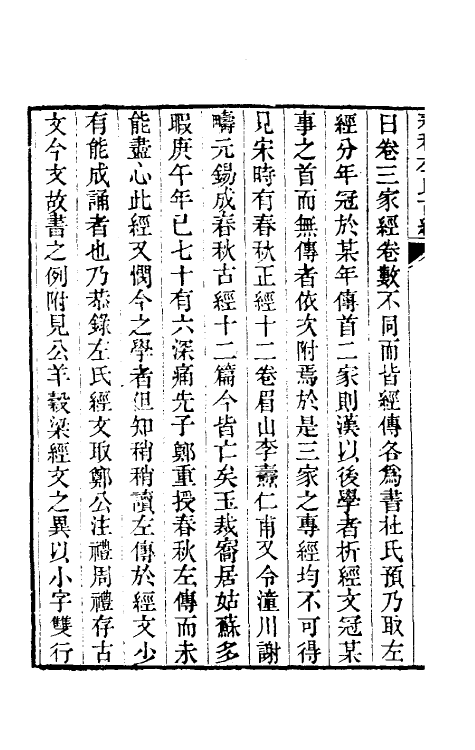 曰卷三家經卷數不同而皆經傳各爲書杜氏預乃取左
經分年冠於某年傳首二家則漢以後學者析經文冠某
事之首而無傳者依次附焉於是三家之專經均不可得
見宋時有春秋正經十二卷眉山李燾仁甫又令潼川謝
疇元錫成春秋古經十二篇今皆亡矣玉裁僑居姑蘇多
暇庚午年已七十有六深痛先子鄭重授春秋左傳而未
能盡心此經又憫今之學者但知稍稍讀左傳於經文少
有能成誦者也乃恭錄左氏經文取鄭公注禮周禮存古
文今文故書之例附見公羊榖梁經文之異以小字雙行